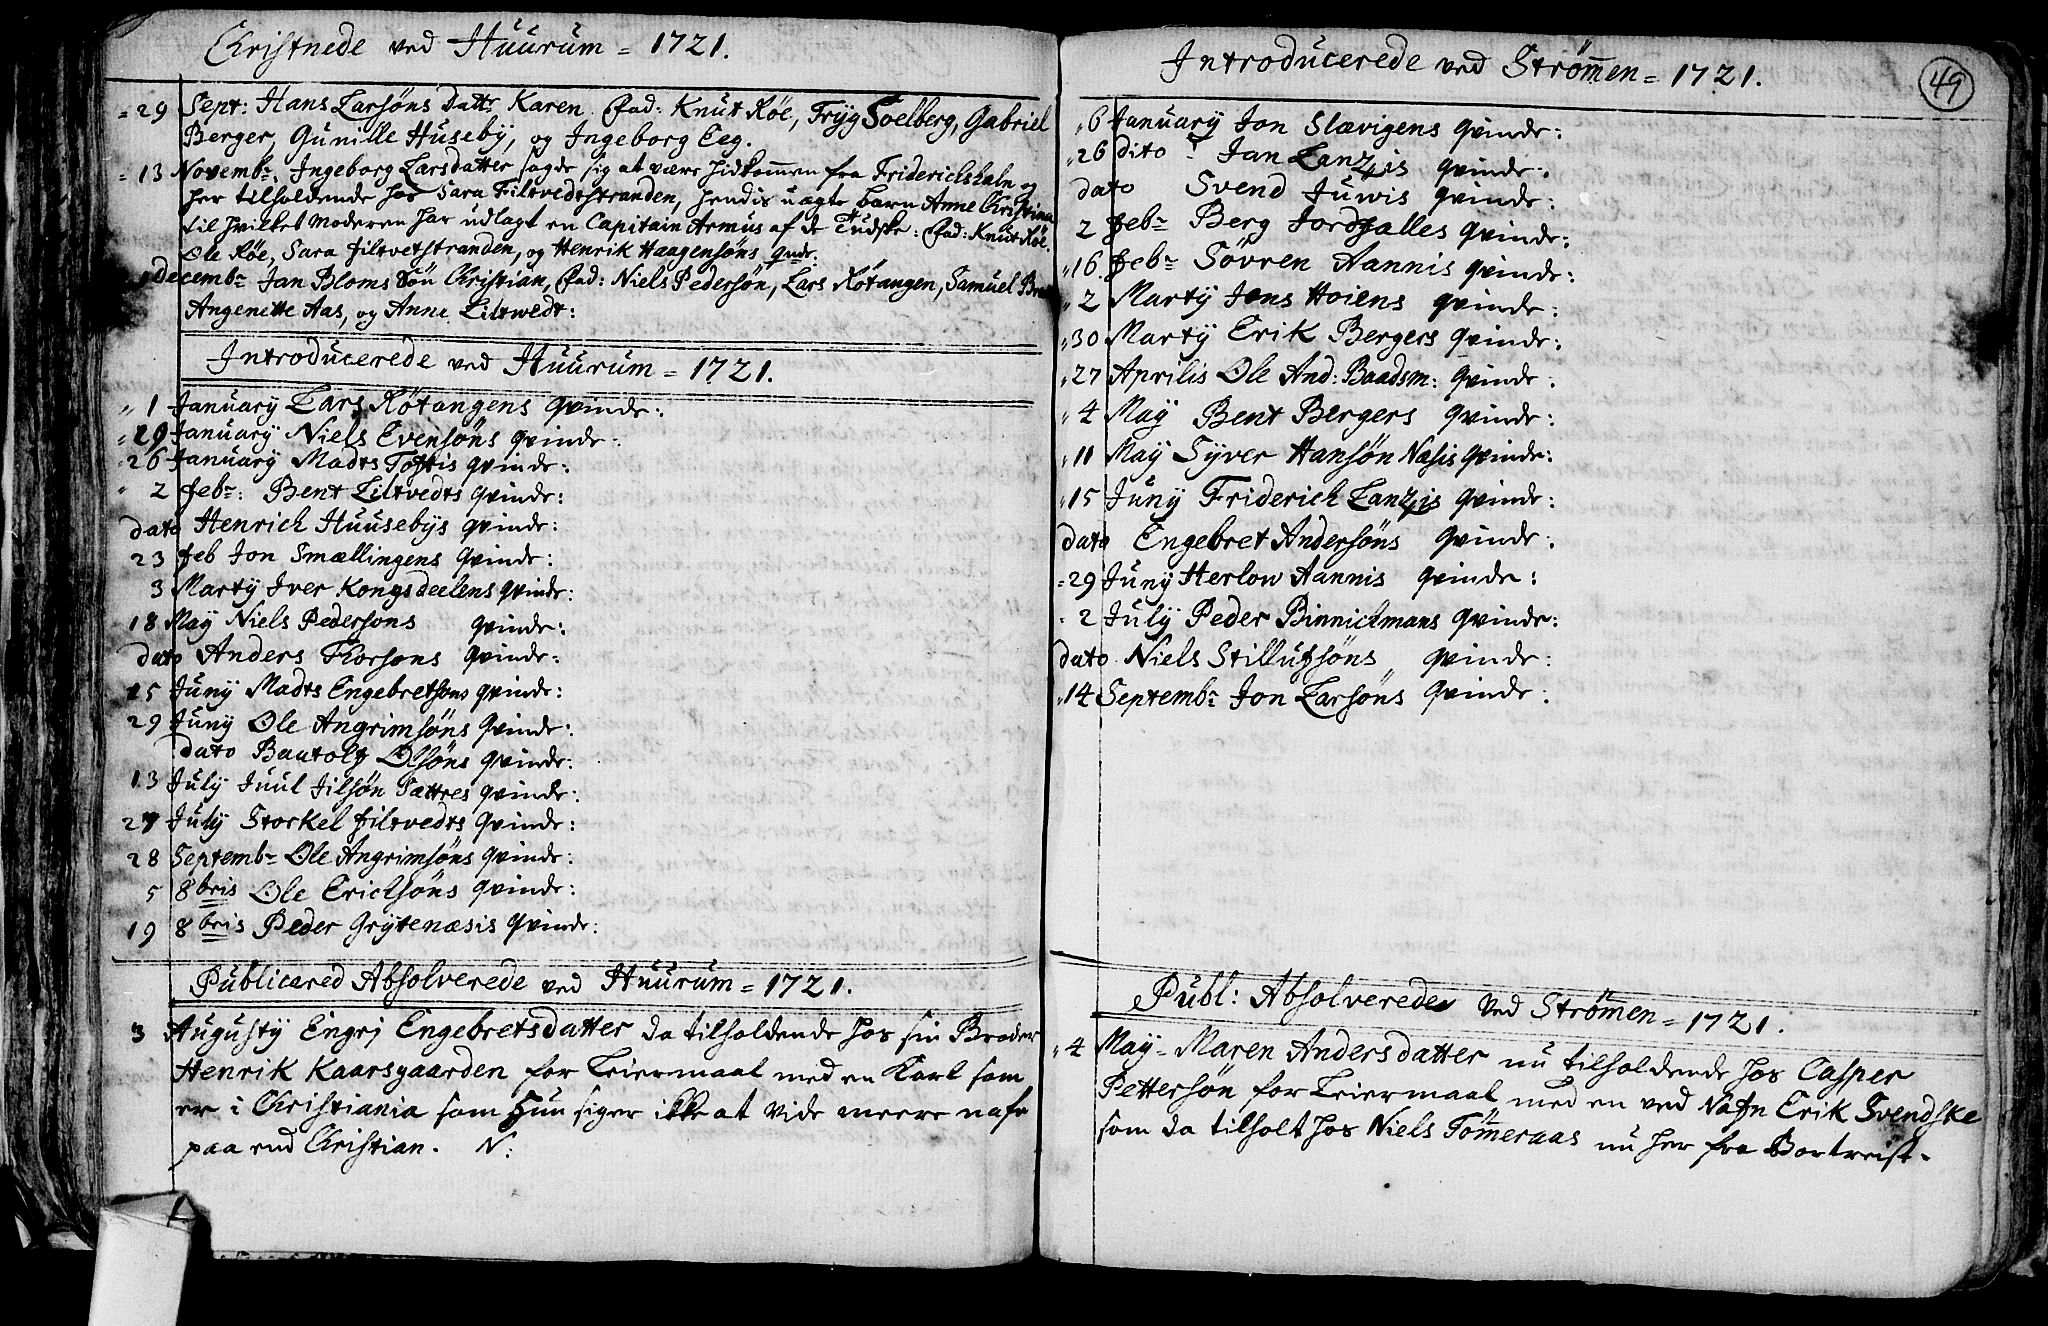 Christnede ved Huurum = 1721.
= 29 Sept: Hans Larsöns Dattr Karen. Fad: Knut Röe, Tryg Soelberg, Gabriel
Berger, Gunille Huseby, og Ingeborg Eeg.
= 13 Novembr. Ingeborg Larsdatter sagde sig at være hidkommen fra Friderichshaln og
her tilholdende hos Sara Filtvedtstranden, hendis uægte barn Anne Christina
til hvilket moderen har udlagt en Capitain Armus af de Tydske: Fad: Knut Röe.
Ole Röe, Sara filtvetstranden, og Henrik Haagensöns qvde.
Decembr Jan Bloms Sön Christian, Fad: Niels Pedersön, Lars Rötangen, Samuel
Angenette Aas, og Anne Liltwedt:
Introducerede ved Huurum = 1721.
" 1 January Lars Rötangens qvinde:
" 29 January Niels Evensöns qvinde:
" 26 January Madts Toftis qvinde:
" 2 febr: Bent Liltvedts qvinde:
dato Henrich Huusebys qvinde:
23 feb Jon Smællingens qvinde:
3 Marty Iver Kongsdeelens qvinde:
18 May Niels Pedersons qvinde:
dato Anders Thorsons qvinde:
15 Juny Madts Engebretsons qvinde:
29 Juny Ole Angrimsöns qvinde:
dato Bautolf Olsöns qvinde:
13 July Juul Jilsön Sættres qvinde:
27 July Storkel filtvedts qvinde:
28 Septembr Ole Angrimsöns qvinde:
5 8bris Ole Ericksöns qvinde:
19 8bris Peder Grytenæsis qvinde:
Publicered Absolverede ved Huurum = 1721.
3 Augusty Engrj Engebretsdatter da tilholdende hos sin Broder
Henrik Kaarsgaarden for Leiermaal med en Karl som
er i Christiania som hun siger ikke at vide meere nafn
paa end Christian. N:
49
Introducerede ved Strömen = 1721.
" 6 January Jon Slævigens qvinde:
" 26 dito Jan Lanzis qvinde:
dato Svend Juwis qvinde:
2 febr Berg Jordfalles qvinde:
" 16 febr Sövren Aannis qvinde:
" 2 Marty Jens Hoiens qvinde:
" 30 Marty Erik Bergers qvinde:
" 27 Aprilis Ole And: Baadsm: qvinde:
" 4 May Bent Bergers qvinde:
" 11 May Syver Hansön Næsis qvinde:
" 15 Juny Friderich Lanzis qvinde:
dato Engebret Andersöns qvinde:
= 29 Juny Herlow Aannis qvinde:
" 2 July Peder Binnickmans qvinde:
dato Niels Stillufsöns qvinde:
" 14 Septembr Jon Larsöns qvinde:
Publ: Absolverede ved Strömen = 1721.
" 4 May - Maren Andersdatter nu tilholdende hos Casper
Pettersön for Leiermaal med en ved Nafn Erik Svendske
som da tilholt hos Niels Tömeraas nu her fra Bortreist.